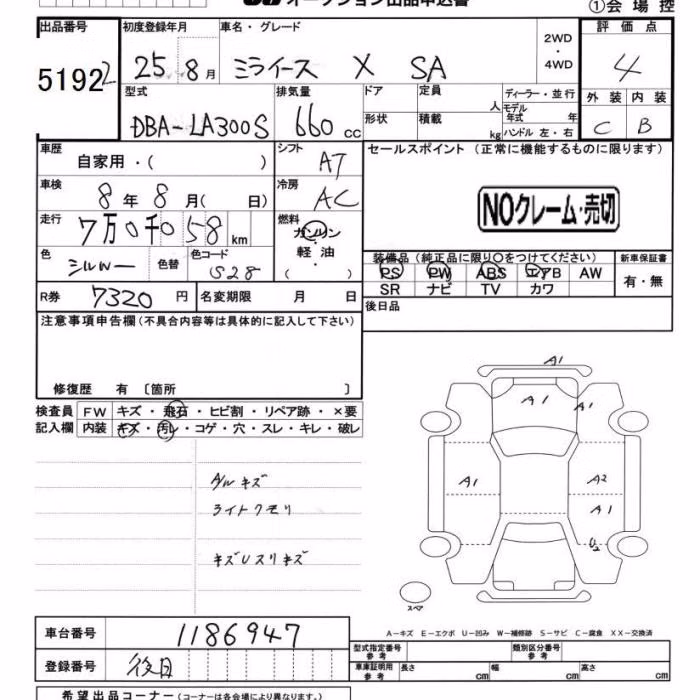 オークション出品申込書
①会場控
出品番号 初度登録年月 車名・グレード 2WD・4WD 評価点
51922 25 8月 ミライース X SA 4
型式 排気量 ドア 定員 人 ディーラー・並行 外装 内装
DBA-LA300S 660cc 形状 積載 kg モデル年式 年 ハンドル 左・右 C B
車歴 自家用・( ) シフト AT セールスポイント(正常に機能するものに限ります)
車検 8年8月( 日) 冷房 AC
NOクレーム・売切
走行 7万0千058km 燃料 ガソリン・軽油・( )
色 シルバー 色替 色コード S28
装備品(純正品に限り○をつけてください) 新車保証書
PS PW ABS エアB AW 有・無
SR ナビ TV カワ
R券 7320円 名変期限 月 日
後日品
注意事項申告欄(不具合内容等は具体的に記入して下さい)
修復歴 有〔箇所 〕
検査員記入欄 FW キズ・飛石・ヒビ割・リペア跡・×要
内装 キズ・汚レ・コゲ・穴・スレ・キレ・破レ
A1
A1 A1
A1 A2
A1
U2
アルキズ
ライトクモリ
キズUスリキズ
スペア
A-キズ E-エクボ U-凹み W-補修跡 S-サビ C-腐食 XX-交換済
車台番号 1186947
型式指定番号 参考 類別区分番号 参考
登録番号 後日
車庫証明用 参考 長さ cm 幅 cm 高さ cm
希望出品コーナー(コーナーは各会場により異なります。)